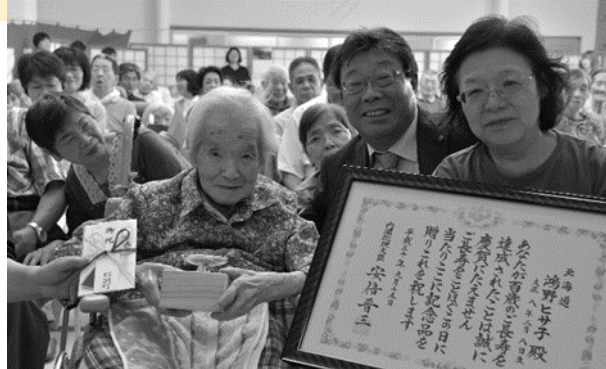 北海道
鴻野ヒサ子 殿
大正八年 月八日生
あなたが百歳のご長寿を
達成されたことは誠に
慶賀にたえません
ご長寿をことほぎこの日に
当たりここに記念品を
贈りこれを祝します
平成三十年九月十五日
内閣総理大臣 安倍晋三
御祝